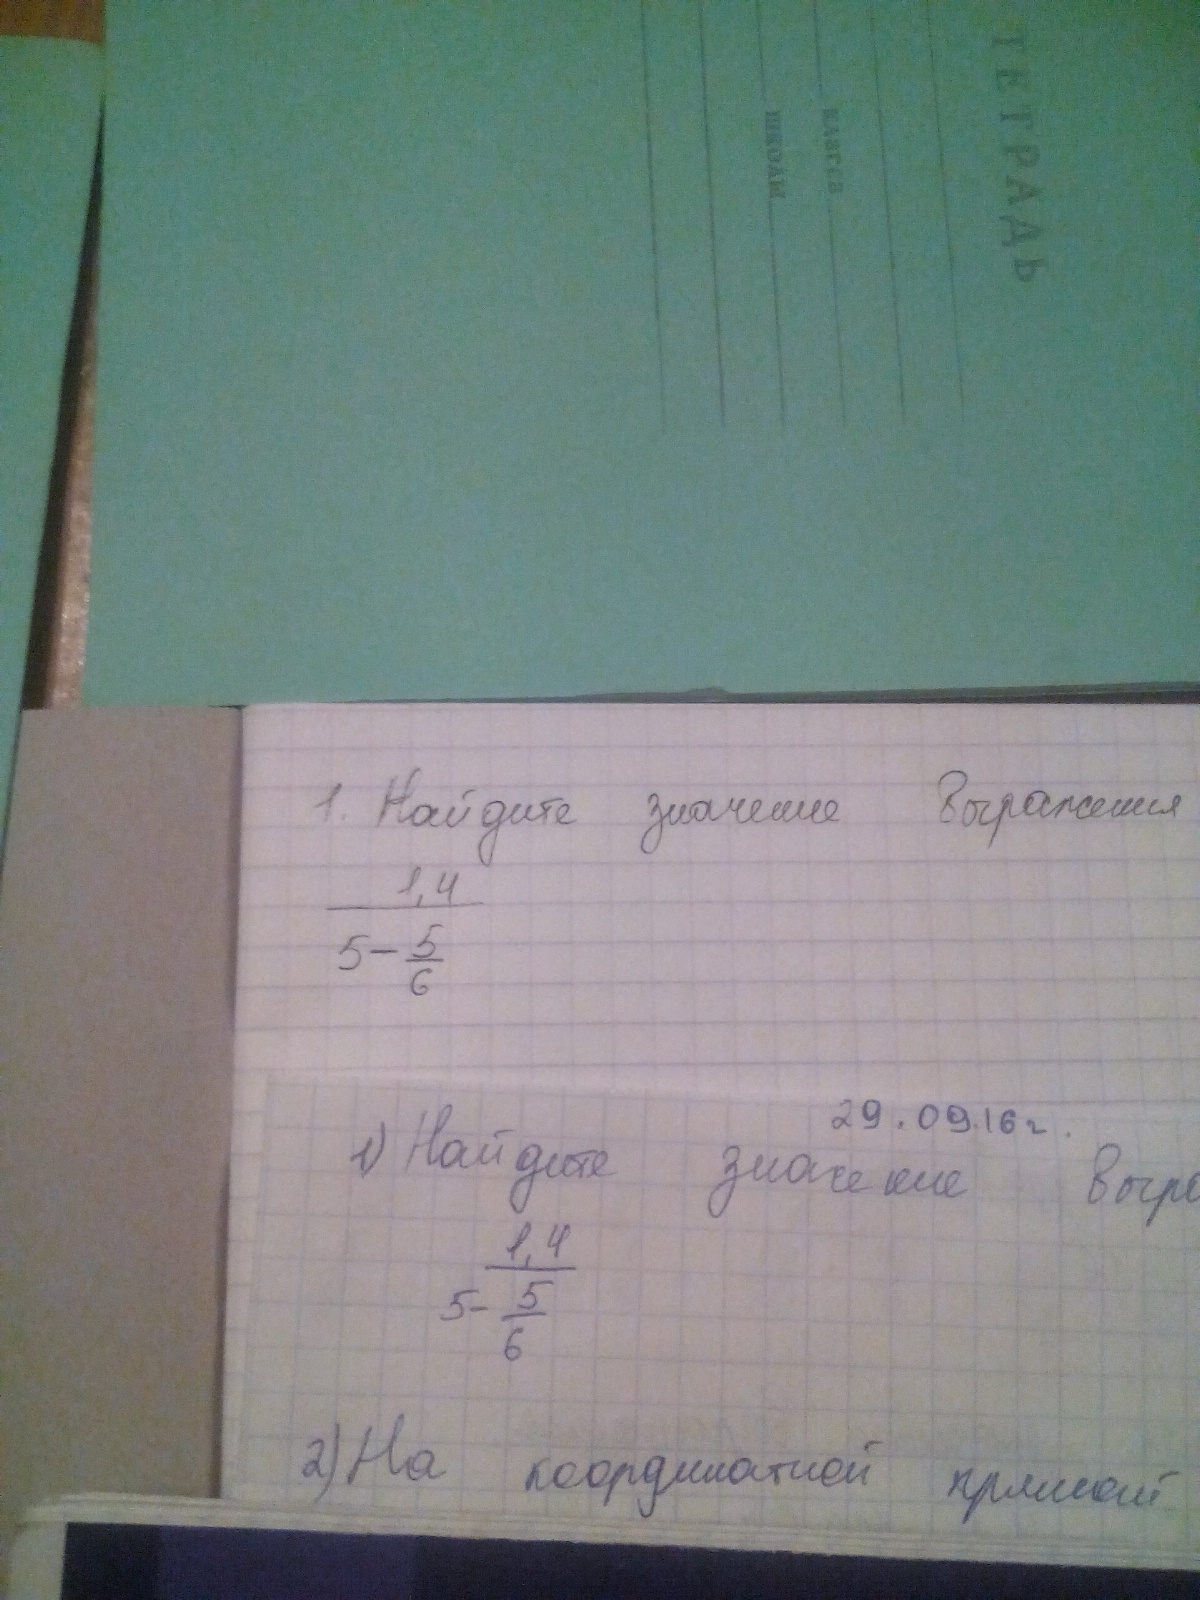 ТЕТРАДЬ
класса
школы
1. Найдите значение выражения
1,4
5-5/6
29.09.16г.
1) Найдите значение выра
1,4
5-5/6
2) На координатной прямой